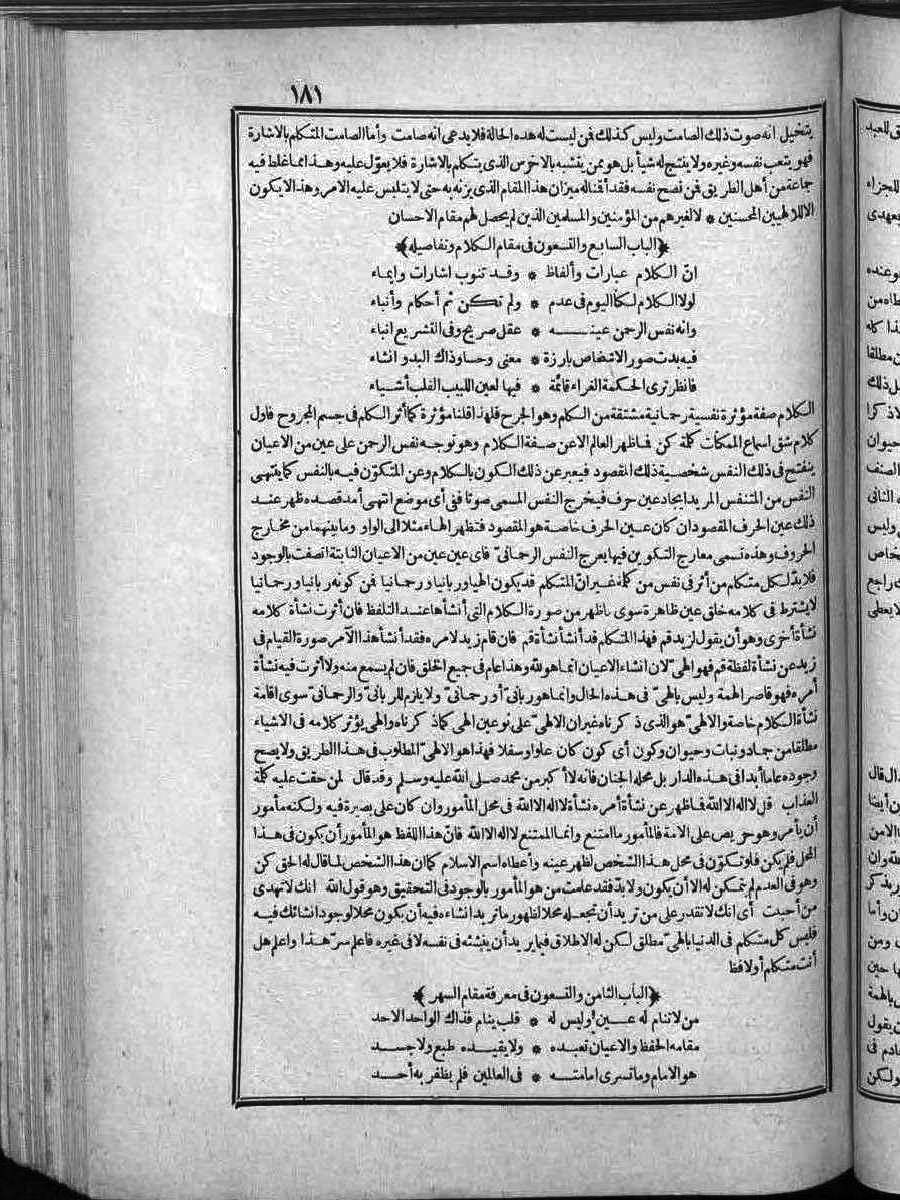 ١٨١
يتخيل انه صوت ذلك الصامت وليس كذلك فمن ليست له هذه الحالة فلا يدعى انه صامت وأما الصامت المتكلم بالاشارة
فهو يتعب نفسه وغيره ولا ينتج له شيأ بل هو ممن يتشبه بالاخرس الذى يتكلم بالاشارة فلا يعوّل عليه وهذا مما غلط فيه
جماعة من أهل الطريق فمن نصح نفسه فقد أقمنا له ميزان هذا المقام الذى يزنه به حتى لا يتلبس عليه الامر وهذا لا يكون
الا للالهيين المحسنين * لا لغيرهم من المؤمنين والمسلمين الذين لم يحصل لهم مقام الاحسان
﴿الباب السابع والتسعون فى مقام الكلام وتفاصيله﴾
انّ الكلام عبارات وألفاظ * وقد تنوب اشارات وايماء
لولا الكلام لكنا اليوم فى عدم * ولم تكن ثم أحكام وأنباء
وانه نفس الرحمن عينه * عقل صريح وفى التشريع انباء
فيه بدت صور الاشخاص بارزة * معنى وحسا وذاك البدو انشاء
فانظر ترى الحكمة الغراء قائمة * فيها لعين اللبيب القلب أشياء
الكلام صفة مؤثرة نفسية رحمانية مشتقة من الكلم وهو الجرح فلهذا قلنا مؤثرة كما أثر الكلم فى جسم المجروح فاول
كلام شق اسماع الممكنات كلمة كن فما ظهر العالم الا عن صفة الكلام وهو توجه نفس الرحمن على عين من الاعيان
ينفتح فى ذلك النفس شخصية ذلك المقصود فيعبر عن ذلك الكون بالكلام وعن المتكوّن فيه بالنفس كما ينتهى
النفس من المتنفس المريد ايجاد عين حرف فيخرج النفس المسمى صوتا ففى أى موضع انتهى أمد قصده ظهر عند
ذلك عين الحرف المقصود ان كان عين الحرف خاصة هو المقصود فتظهر الهاء مثلا الى الواو وما بينهما من مخارج
الحروف وهذه تسمى معارج التكوين فيها يعرج النفس الرحمانىّ فاى عين عين من الاعيان الثابتة اتصفت بالوجود
فلا بدّ لكل متكلم من أثر فى نفس من كلمه غير انّ المتكلم قد يكون الهيا وربانيا ورحمانيا فمن كونه ربانيا ورحمانيا
لا يشترط فى كلامه خلق عين ظاهرة سوى ما ظهر من صورة الكلام التى أنشأها عند التلفظ فان أثرت نشأة كلامه
نشأة أخرى وهو أن يقول لزيد قم فهذا المتكلم قد أنشأ نشأة قم فان قام زيد لامره فقد أنشأ هذا الآمر صورة القيام فى
زيد عن نشأة لفظة قم فهو الهىّ لان انشاء الاعيان انما هو لله وهذا عام فى جميع الخلق فان لم يسمع منه ولا أثرت فيه نشأة
أمره فهو قاصر الهمة وليس بالهىّ فى هذه الحال وانما هو ربانىّ أو رحمانىّ ولا يلزم للربانىّ والرحمانىّ سوى اقامة
نشأة الكلام خاصة والالهىّ هو الذى ذكرناه غير ان الالهىّ على نوعين الهى كما ذكرناه والهى يؤثر كلامه فى الاشياء
مطلقا من جماد ونبات وحيوان وكون أى كون كان علوا وسفلا فهذا هو الالهىّ المطلوب فى هذا الطريق ولا يصح
وجوده عاما أبدا فى هذه الدار بل محله الجنان فانه لا أكبر من محمد صلى الله عليه وسلم وقد قال لمن حقت عليه كلمة
العذاب قل لا اله الا الله فما ظهر عن نشأة أمره نشأة لا اله الا الله فى محل المأمور وان كان على بصيرة فيه ولكنه مأمور
أن يأمر وهو حريص على الامة فالمأمور ما امتنع وانما الممتنع لا اله الا الله فانّ هذا اللفظ هو المأمور أن يكون فى هذا
المحل فلم يكن فلو تكوّن فى محل هذا الشخص لظهر عينه وأعطاه اسم الاسلام كما ان هذا الشخص لما قال له الحق كن
وهو فى العدم لم يتمكن له الا أن يكون ولا بدّ فقد علمت من هو المأمور بالوجود فى التحقيق وهو قول الله انك لا تهدى
من أحببت أى انك لا تقدر على من تريد أن تجعله محلا لظهور ما تريد انشاءه فيه أن يكون محلا لوجود انشائك فيه
فليس كل متكلم فى الدنيا بالهىّ مطلق لكن له الاطلاق فيما يريد أن ينشئه فى نفسه لا فى غيره فاعلم سرّ هذا واعلم هل
أنت متكلم أو لافظ
﴿الباب الثامن والتسعون فى معرفة مقام السهر﴾
من لا تنام له عين وليس له * قلب ينام فذاك الواحد الاحد
مقامه الحفظ والاعيان تعبده * ولا يقيده طبع ولا جسد
هو الامام وما تسرى امامته * فى العالمين فلم يظفر به أحد